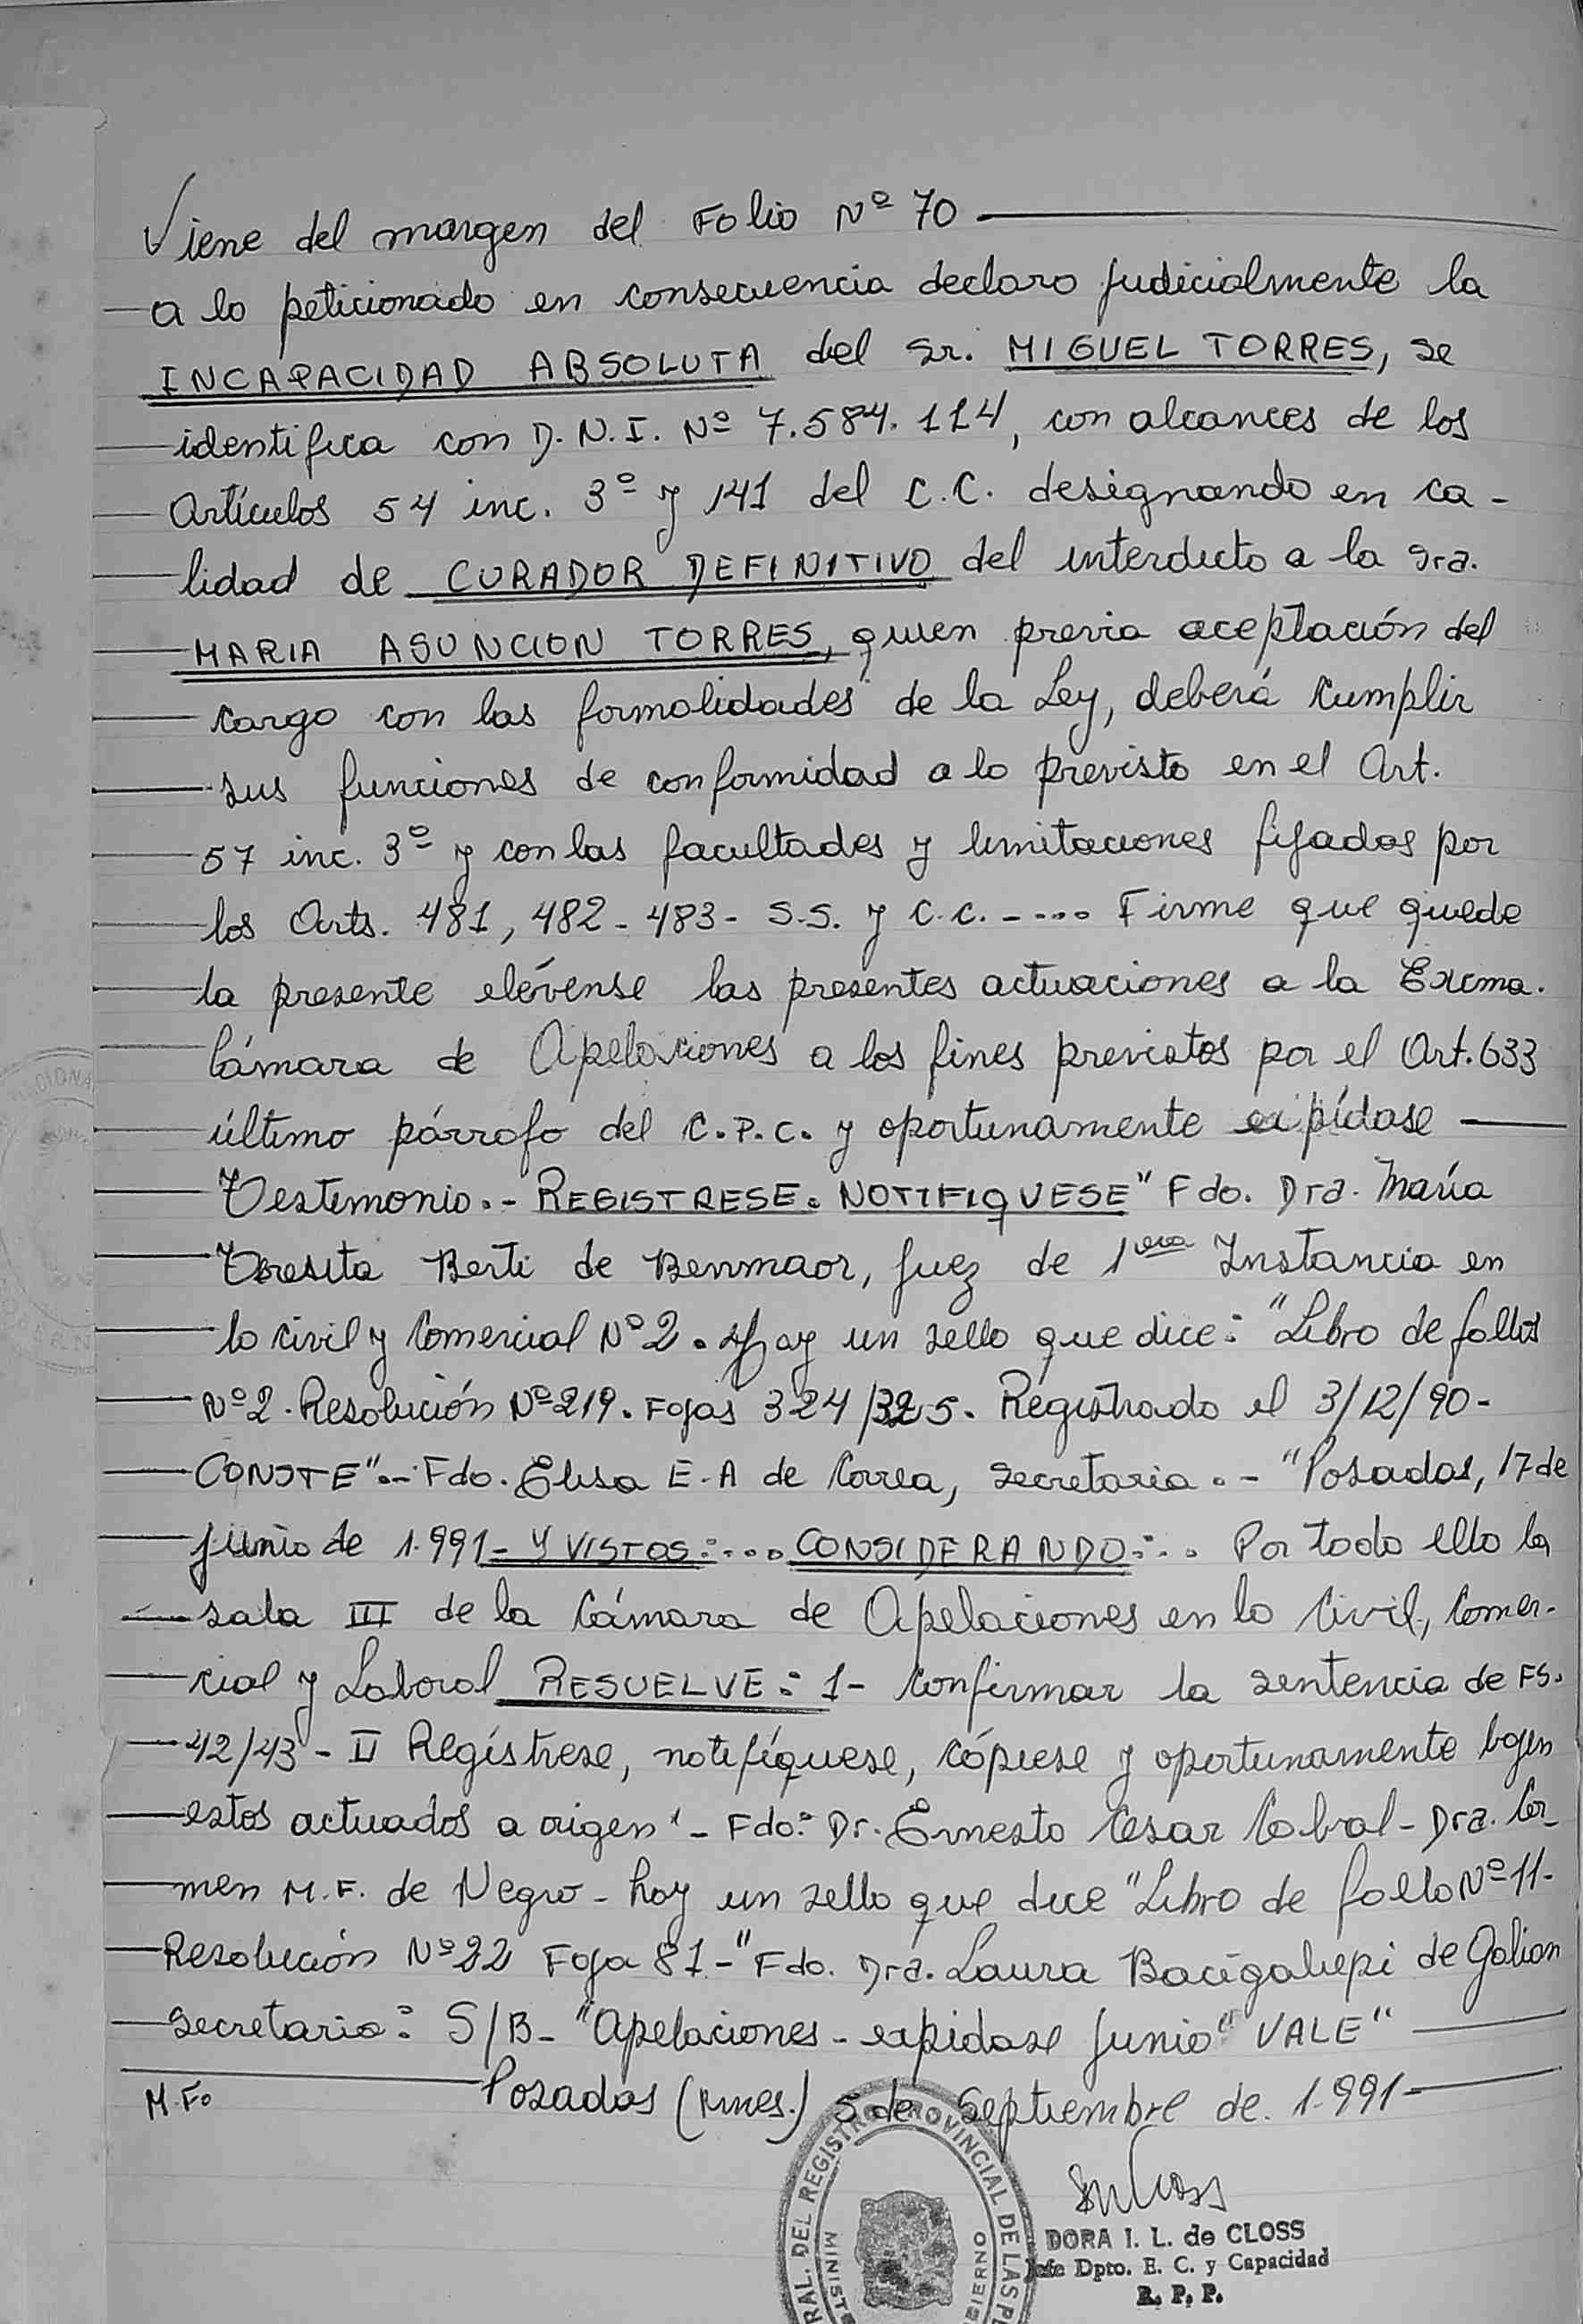 Viene del margen del Folio Nº 70
a lo peticionado en consecuencia declaro judicialmente la
INCAPACIDAD ABSOLUTA del Sr. MIGUEL TORRES, se
identifica con D.N.I. Nº 7.584.114, con alcances de los
Artículos 54 inc. 3º y 141 del C.C. designando en ca-
lidad de CURADOR DEFINITIVO del interdicto a la Sra.
MARIA ASUNCION TORRES, quien previa aceptación del
cargo con las formalidades de la Ley, deberá cumplir
sus funciones de conformidad a lo previsto en el Art.
57 inc. 3º y con las facultades y limitaciones fijadas por
los Arts. 481, 482-483- S.S. y C.C. ----- Firme que quede
la presente elévense las presentes actuaciones a la Excma.
Cámara de Apelaciones a los fines previstos por el Art. 633
último párrafo del C.P.C. y oportunamente expídase
Testimonio.- REGISTRESE. NOTIFIQUESE" Fdo. Dra. María
Teresita Berti de Benmaor, Juez de 1era Instancia en
lo Civil y Comercial Nº 2. Hay un sello que dice: "Libro de fallos
Nº 2. Resolución Nº 219. Fojas 324/325. Registrado el 3/12/90-
CONSTE".- Fdo. Elisa E. A de Correa, secretaria.- "Posadas, 17 de
junio de 1.991- Y VISTOS:... CONSIDERANDO:.. Por todo ello la
sala III de la Cámara de Apelaciones en lo Civil, Comer-
cial y Laboral RESUELVE: 1- Confirmar la sentencia de FS.
42/43 - II Regístrese, notifíquese, cópiese y oportunamente bajen
estos actuados a origen"- Fdo: Dr. Ernesto Cesar Cabral - Dra. Car-
men M.F. de Negro - hay un sello que dice "Libro de fallo Nº 11-
Resolución Nº 22 Foja 81-" Fdo. Dra. Laura Bacigalupi de Galian
secretaria: S/B- "Apelaciones - expidase junio" VALE"
Posadas (Mnes.) 5 de Septiembre de 1.991-
M.Fo
RAL. DEL REGISTRO PROVINCIAL DE LAS P
MINIST
BIERNO
DORA I. L. de CLOSS
Jefe Dpto. E. C. y Capacidad
R. P. P.